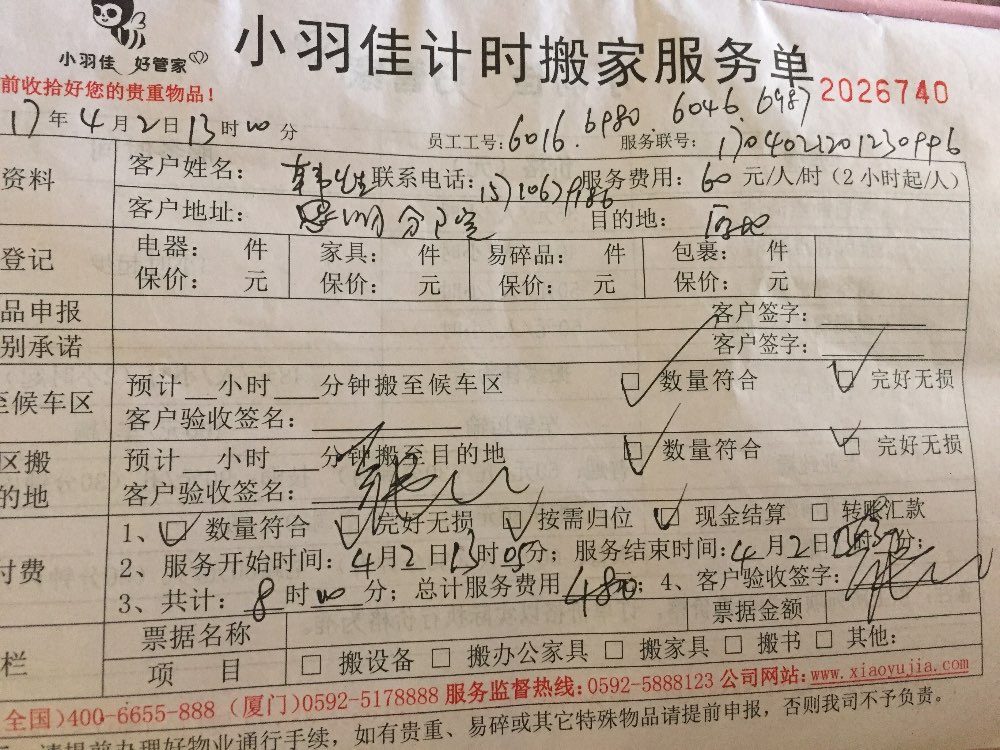 小羽佳 好管家
小羽佳计时搬家服务单
2026740
前收拾好您的贵重物品！
17年4月2日13时00分 员工工号：6016.6980.6046.6987 服务联号：
资料 客户姓名： 联系电话： 服务费用：60元/人/时（2小时起/人）
客户地址：思明 目的地：
登记 电器： 件 家具： 件 易碎品： 件 包裹： 件
保价： 元 保价： 元 保价： 元 保价： 元
品申报 客户签字：
别承诺 客户签字：
至候车区 预计__小时___分钟搬至候车区 □ 数量符合 □ 完好无损
客户验收签名：
区搬 预计__小时___分钟搬至目的地 □ 数量符合 □ 完好无损
的地 客户验收签名：
1、□ 数量符合 □ 完好无损 □ 按需归位 □ 现金结算 □ 转账汇款
付费 2、服务开始时间：4月2日13时05分；服务结束时间：4月2日
3、共计：8时00分；总计服务费用480元；4、客户验收签字：
栏 票据名称 票据金额
项 目 □ 搬设备 □ 搬办公家具 □ 搬家具 □ 搬书 □ 其他：
全国)400-6655-888 (厦门)0592-5178888 服务监督热线：0592-5888123 公司网站：www.xiaoyujia.com
请提前办理好物业通行手续，如有贵重、易碎或其它特殊物品请提前申报，否则我司不予负责。